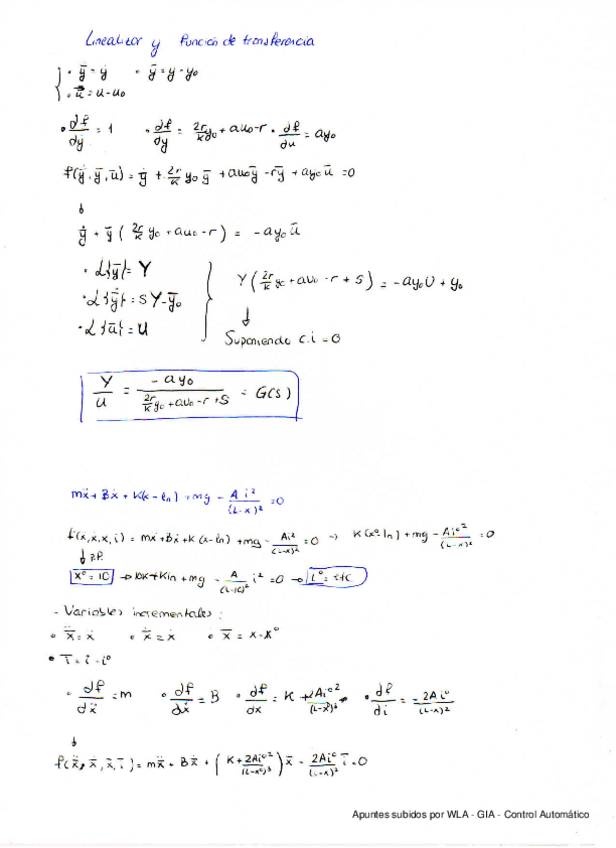 Linealizar y Función de transferencia
• ȳ̇ = ẏ • ȳ = y - y₀
• ū = u - u₀
• df/dẏ = 1 • df/dy = 2r/K y₀ + au₀ - r • df/du = ay₀
f(ẏ, ȳ, ū) = ȳ̇ + 2r/K y₀ ȳ + au₀ȳ - rȳ + ay₀ū = 0
↓
ȳ̇ + ȳ ( 2r/K y₀ + au₀ - r ) = - ay₀ū
• L{ȳ} = Y
• L{ȳ̇} = SY - ȳ₀
• L{ū} = U
Y ( 2r/K y₀ + au₀ - r + s ) = - ay₀U + y₀
↓
Suponiendo c.i = 0
Y/U = - ay₀ / ( 2r/K y₀ + au₀ - r + s ) = G(s)
mẍ + Bẋ + K(x - ln) + mg - A i²/(L-x)² = 0
f(ẍ, ẋ, x, i) = mẍ + Bẋ + K(x - ln) + mg - Ai²/(L-x)² = 0 → K(x⁰ - ln) + mg - Ai⁰²/(L-x)² = 0
x⁰ = 10 → 10K + Kln + mg - A/(L-10)² i² = 0 →
- Variables incrementales:
• x̄̈ = ẍ • x̄̇ = ẋ • x̄ = x - x⁰
• ī = i - i⁰
• df/dẍ = m • df/dẋ = B • df/dx = K + 2Ai⁰²/(L-x)³ • df/di = - 2Ai⁰/(L-x)²
↓
f(ẍ, ẋ, x̄, ī) = mẍ + Bẋ + ( K + 2Ai⁰²/(L-x⁰)³ ) x̄ - 2Ai⁰/(L-x)² ī = 0
Apuntes subidos por WLA - GIA - Control Automático